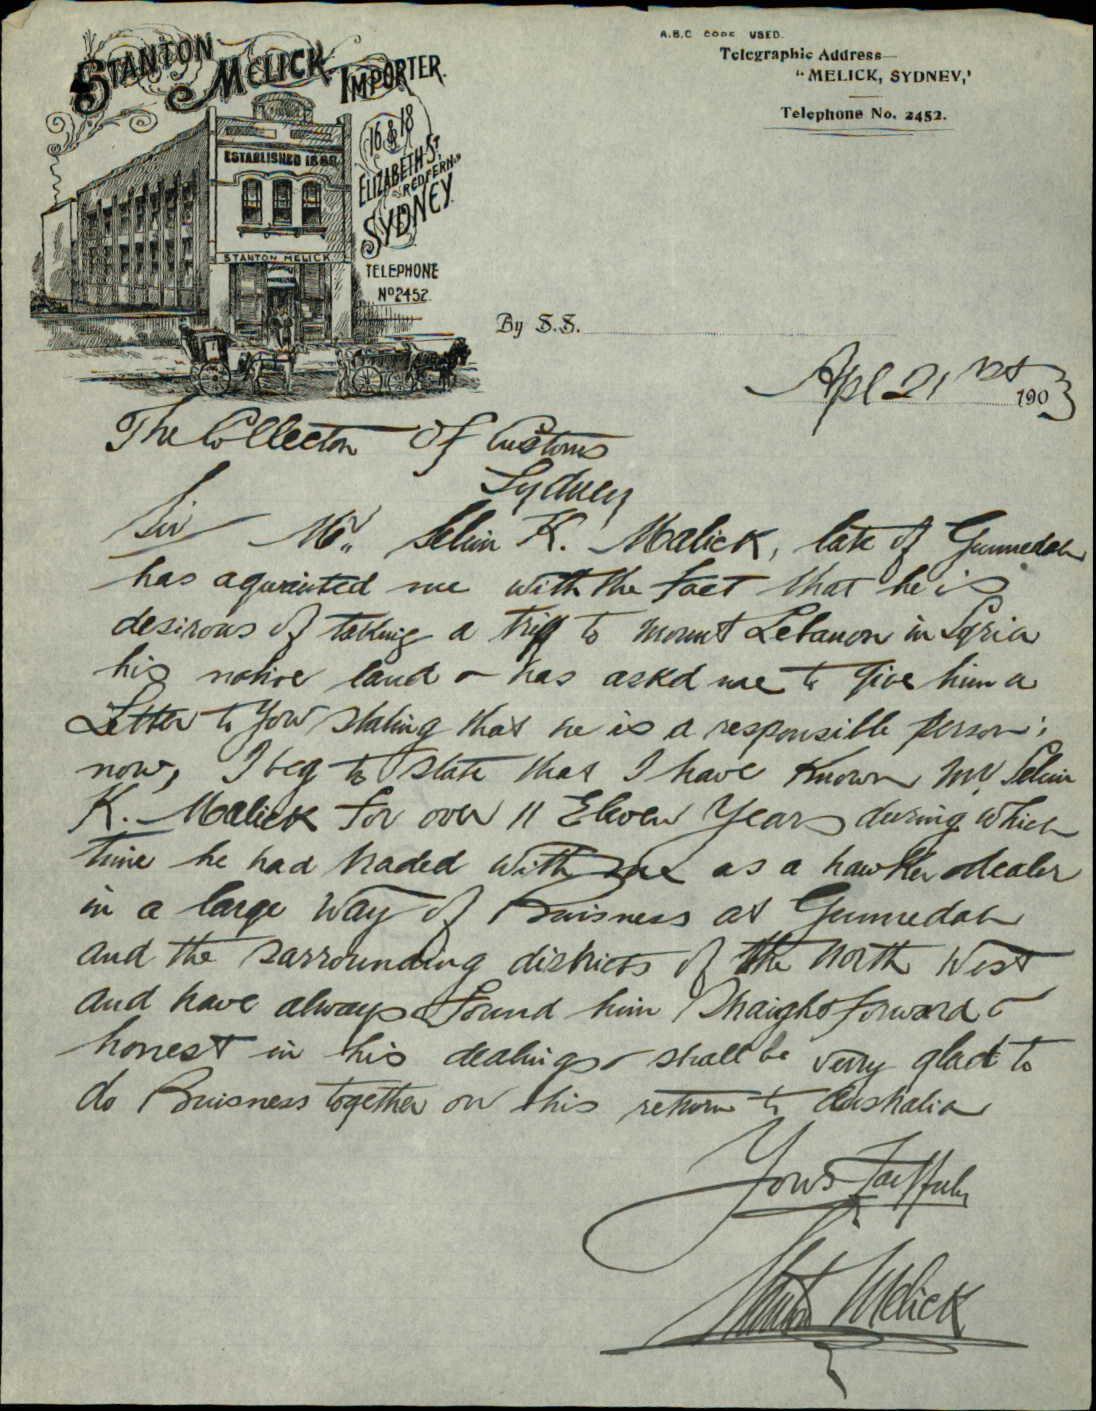 A.B.C CODE USED.
Telegraphic Address—
"MELICK, SYDNEY,"
Telephone No. 2452.
STANTON MELICK IMPORTER.
16 & 18
ELIZABETH ST
REDFERN
SYDNEY.
TELEPHONE
No 2452.
ESTABLISHED 1888
STANTON MELICK
By S.S.
Apl 21st 1903
The Collector Of Customs
Sydney
Sir Mr. Selim K. Malick, late of Gunnedah
has aquainted me with the fact that he is
desirous of taking a trip to Mount Lebanon in Syria
his native land & has askd me to give him a
Letter to You stating that he is a responsible person;
now, I beg to state that I have Known Mr. Selim
K. Malick for over 11 Eleven Years during which
time he had traded with me as a hawker dealer
in a large way of Buisness at Gunnedah
and the sarrounding districts of the North West
and have always found him Straightforward &
honest in his dealings & shall be verry glad to
do Buisness together on this return to Australia
Yours Faithfully
Stanton Melick